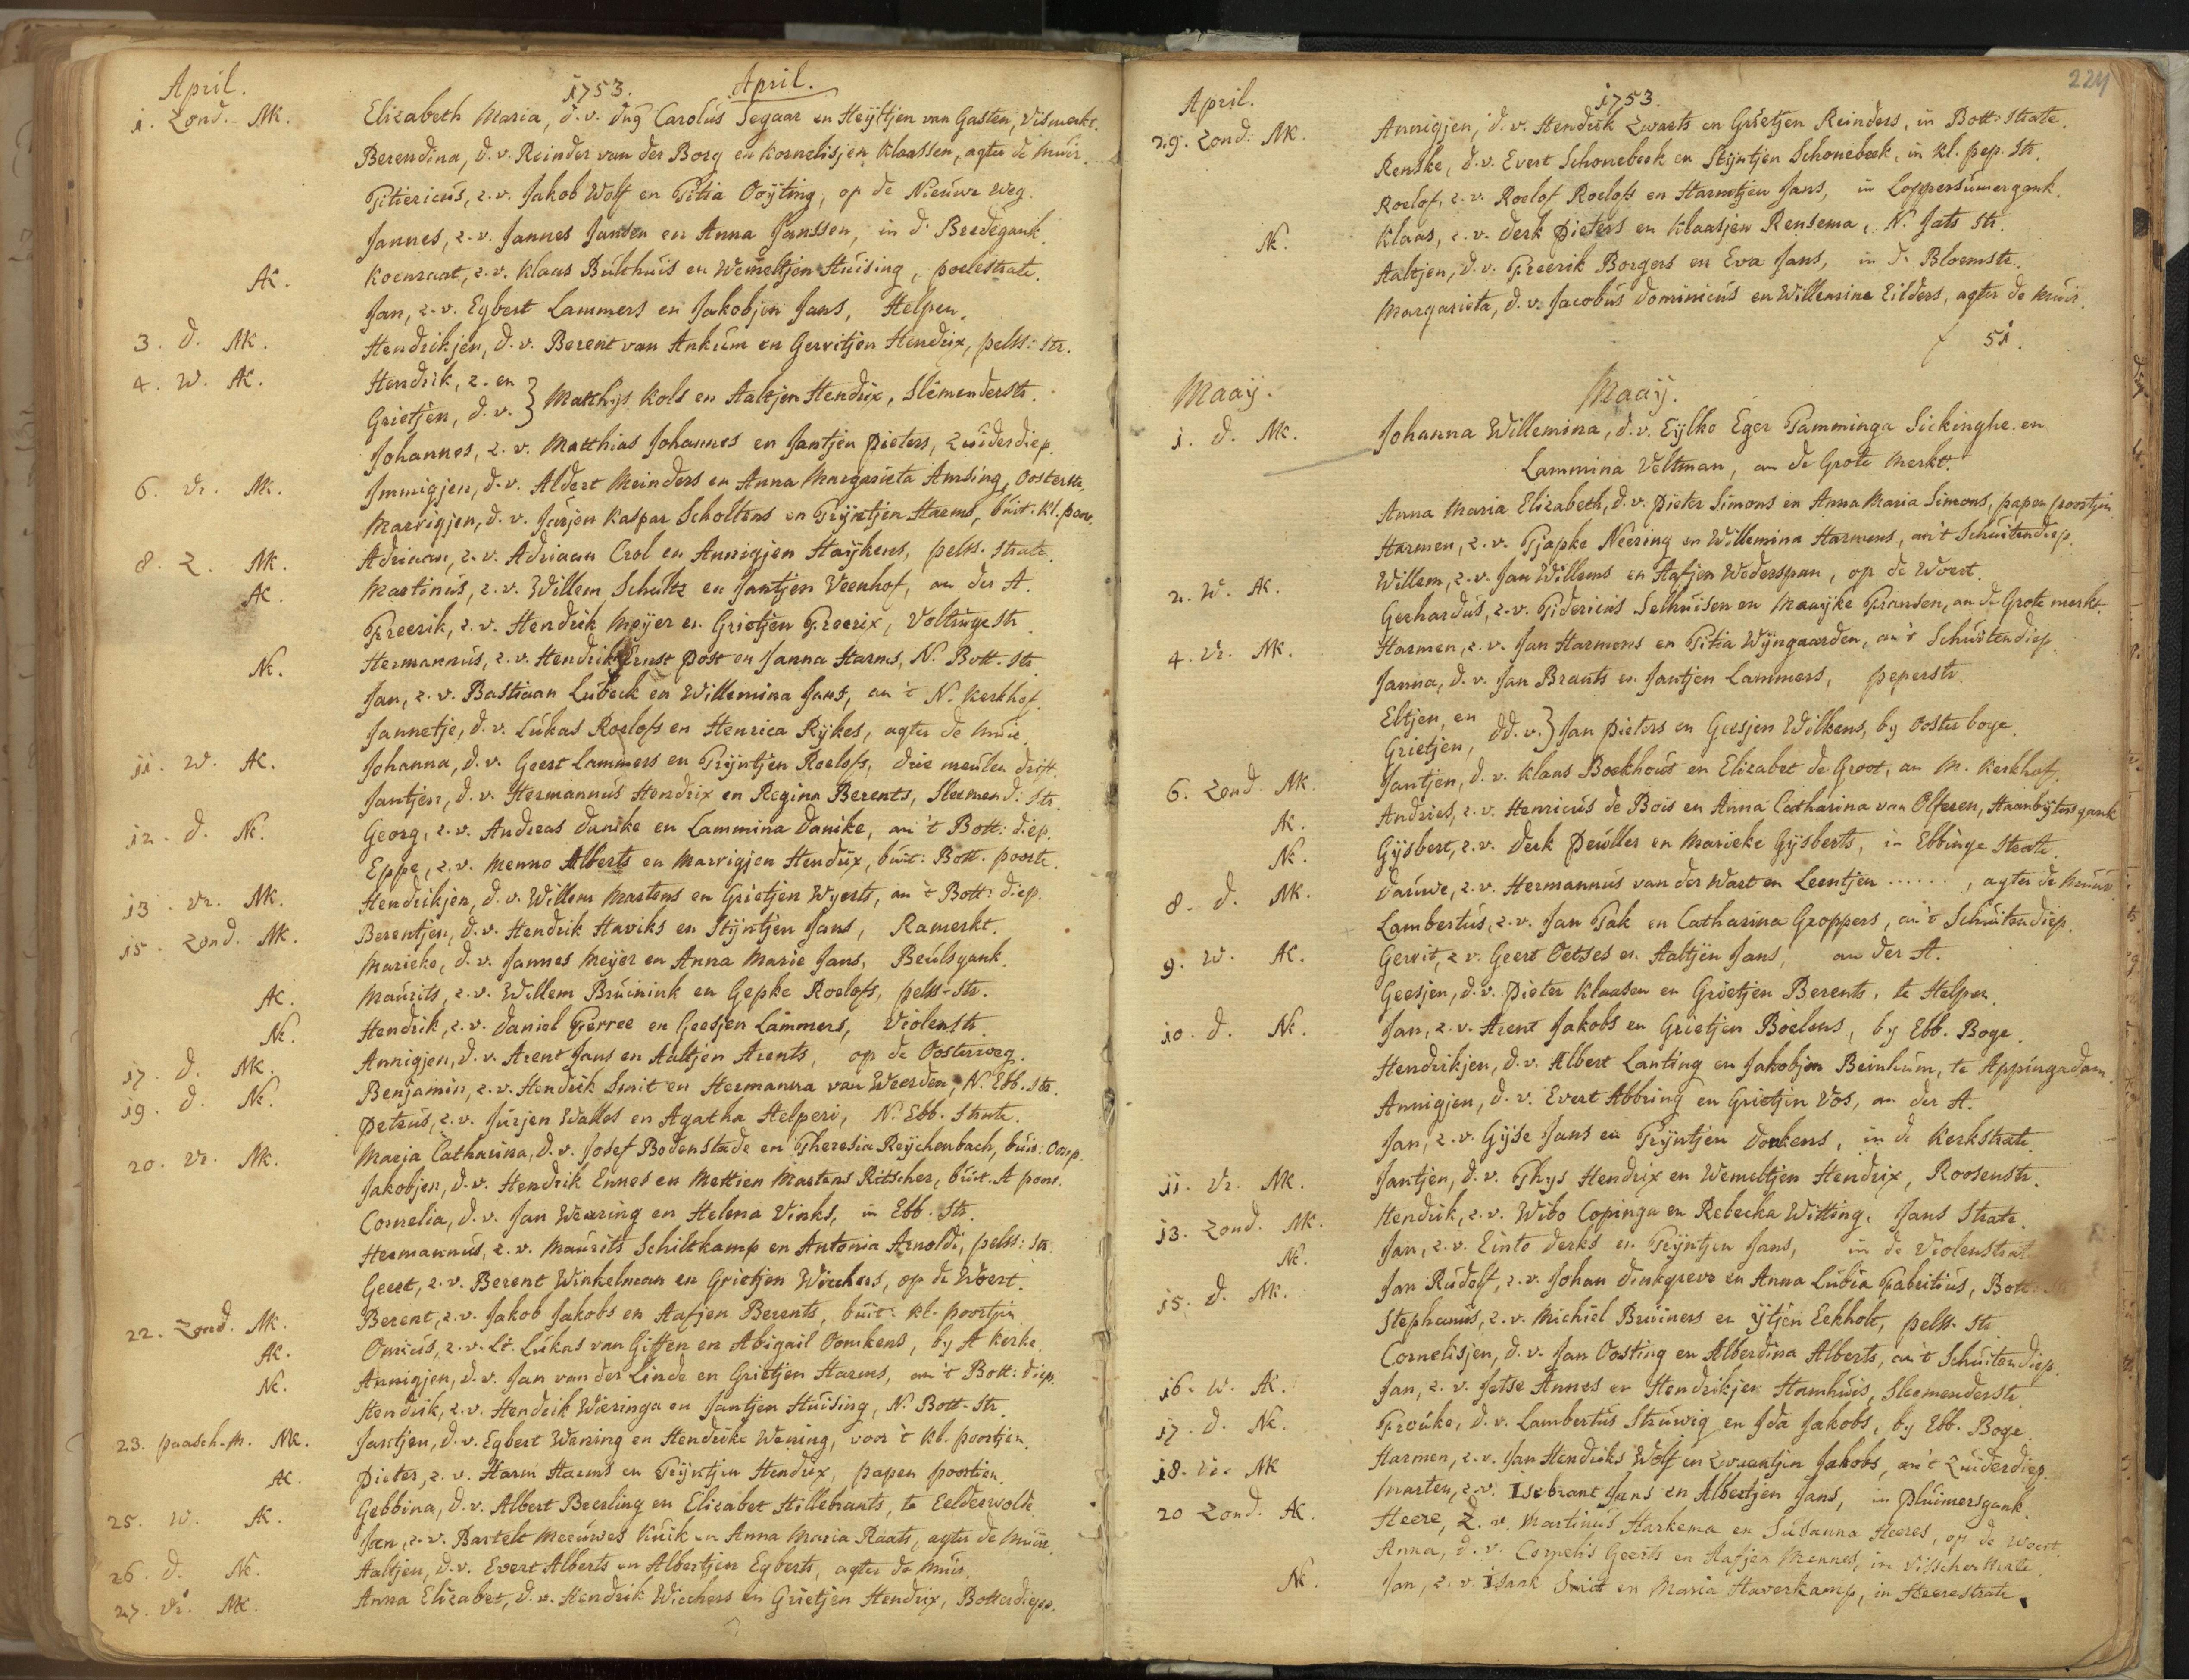 April. 1753. April.
1. Zond. MK. Elizabeth Maria, d. v. Carolus Segaar en Heyltjen van Gasten, Vismerkt.
Berendina, d. v. Reinder van der Borg en Kornelisjen Klaassen, agter de muir.
Titiericus, z. v. Jakob Wolf en Titia Ooyting, op de Nieuwe weg.
Jannes, z. v. Jannes Jansen en Anna Janssen, in d' Bredegank.
AK. Koenraat, z. v. Klaas Bulthuis en Wemeltjen Huising, poelestrate.
Jan, z. v. Egbert Lammers en Jakobjen Jans, Helpen.
3. D. MK. Hendrikjen, d. v. Berent van Ankum en Gerritjen Hendrix, pelss: str.
4. W. AK. Hendrik, z. en
Grietjen, d. v. } Matthys Kols en Aaltjen Hendrix, Slemenderstr.
Johannes, z. v. Matthias Johannes en Jantjen Pieters, Zuiderdiep.
6. Vr. MK. Immigjen, d. v. Aldert Meinders en Anna Margarieta Amsing, Oosterstr.
Marrigjen, d. v. Jurjen Kaspar Scholtens en Tryntjen Harms, buit. kl. poor.
8. Z. MK. Adriaan, z. v. Adriaan Crol en Annigjen Haykens, pelss. strate.
AK. Martinus, z. v. Willem Schultz en Jantjen Veenhof, an der A.
Freerik, z. v. Hendrik Meyer en Grietjen Freerix, Voltinge str.
NK. Hermannus, z. v. Hendrik Ernst Post en Janna Harms, N. Bott. str.
Jan, z. v. Bastiaan Lubeck en Willemina Jans, an 't N. Kerkhof.
Jannetje, d. v. Lukas Roelofs en Henrica Rykes, agter de muir.
11. W. AK. Johanna, d. v. Geert Lammers en Tryntjen Roelofs, drie meulen drift.
Jantjen, d. v. Hermannus Hendrix en Regina Berents, Sleemend: Str.
12. D. NK. Georg, z. v. Andreas Danike en Lammina Danike, an 't Bott: diep.
Eppe, z. v. Menno Alberts en Marrigjen Hendrix, buit: Bott. poorte.
13. Vr. MK. Hendrikjen, d. v. Willem Martens en Grietjen Wyerts, an 't Bott: diep.
15. Zond. MK. Berentjen, d. v. Hendrik Haviks en Styntjen Jans, Ramerkt.
Marieke, d. v. Jannes Meyer en Anna Marie Jans, Beulsgank.
AK. Maurits, z. v. Willem Bruinink en Gepke Roelofs, pelss-Str.
NK. Hendrik, z. v. Daniel Ferree en Geesjen Lammers, Violenstr.
17. D. MK. Annigjen, d. v. Arent Jans en Aaltjen Arents, op de Oosterweg.
19. D. NK. Benjamin, z. v. Hendrik Smit en Hermanna van Weerden, N. Ebb. Str.
Petrus, z. v. Jurjen Walles en Agatha Helperi, N. Ebb. Strate.
20. Vr. MK. Maria Catharina, d. v. Josef Bodenstade en Theresia Reychenbach, buit: Oorp.
Jakobjen, d. v. Hendrik Ennes en Mettien Martens Ritscher, buit. A poort.
Cornelia, d. v. Jan Wearing en Helena Vinks, in Ebb. Str.
Hermannus, z. v. Maurits Schiltkamp en Antonia Arnoldi, pelss: Str.
Geert, z. v. Berent Winkelman en Grietjen Wiechers, op de Woert.
22. Zond. MK. Berent, z. v. Jakob Jakobs en Aafjen Berents, buit: kl. poortjen.
AK. Omicus, z. v. Lt. Lukas van Giffen en Abigail Oomkens, by A kerke.
NK. Annigjen, d. v. Jan van der Linde en Grietjen Harms, an 't Bott: diep.
Hendrik, z. v. Hendrik Wieringa en Jantjen Huising, N. Bott-Str.
23. paasch-m. MK. Jantjen, d. v. Egbert Wening en Hendrike Wening, voor 't kl. poortjen.
AK. Pieter, z. v. Harm Harms en Tryntjen Hendrix, papen poortien.
25. W. AK. Gebbina, d. v. Albert Beerling en Elizabet Hillebrants, te Eelderwolde.
Jan, z. v. Bartelt Meeuwes Kuik en Anna Maria Raats, agter de Muir.
26. D. NK. Aaltjen, d. v. Evert Alberts en Albertjen Egberts, agter de muir.
27. Vr. MK. Anna Elizabet, d. v. Hendrik Wiechers en Grietjen Hendrix, Botterdiep.
224
April. 1753.
29. Zond: MK. Annigjen, d. v. Hendrik Zwarts en Grietjen Reinders, in Bott: strate.
Renske, d. v. Evert Schonebeek en Styntjen Schonebeek, in kl. pep. Str.
Roelof, z. v. Roelof Roelofs en Harmtjen Jans, in Loppersumergank.
NK. Klaas, z. v. Derk Pieters en Klaasjen Rensema, N. Jats Str.
Aaltjen, d. v. Freerik Borgers en Eva Jans, in d' Bloemstr.
Margarieta, d. v. Jacobus Dominicus en Willemina Eilders, agter de muir.
51.
Maaij. Maaij.
1. D. MK. Johanna Willemina, d. v. Eylko Eger Tamminga Sickinghe en
Lammina Veltman, an de Grote Merkt.
Anna Maria Elizabeth, d. v. Pieter Simons en Anna Maria Simons, papen poortjen.
Harmen, z. v. Tjapke Neering en Willemina Harmens, an 't Schuitendiep.
2. W. AK. Willem, z. v. Jan Willems en Aafjen Wederspan, op de Woert.
Gerhardus, z. v. Tidericus Selhuisen en Maayke Fransen, an de Grote merkt.
4. Vr. MK. Harmen, z. v. Jan Harmens en Titia Wyngaarden, an 't Schuitendiep.
Janna, d. v. Jan Brants en Jantjen Lammers, peperstr.
Eltjen, en
Grietjen, dd. v. } Jan Pieters en Geesjen Wilkens, by Ooster boge.
6. Zond. MK. Jantjen, d. v. Klaas Boekhout en Elizabet de Groot, an M. Kerkhof.
AK. Andries, z. v. Henricus de Bois en Anna Catharina van Olferen, Haanbytersgank
NK. Gysbert, z. v. Derk Deulles en Marieke Gysberts, in Ebbinge strate.
8. D. MK. Dauwe, z. v. Hermannus van der Wart en Leentjen ......, agter de muir
Lambertus, z. v. Jan Tak en Catharina Groppers, an 't Schuitendiep.
9. W. AK. Gerrit, z. v. Geert Oetses en Aaltjen Jans, an der A.
Geesjen, d. v. Pieter Klaasen en Grietjen Berents, te Helpen.
10. D. NK. Jan, z. v. Arent Jakobs en Grietjen Boelens, by Ebb. Boge.
Hendrikjen, d. v. Albert Lanting en Jakobjen Beinkum, te Appingadam.
Annigjen, d. v. Evert Abbring en Grietjen Vos, an der A.
Jan, z. v. Gijse Jans en Tryntjen Donkens, in de Kerkstrate.
11. Vr. MK. Jantjen, d. v. Thys Hendrix en Wemeltjen Hendrix, Roosenstr.
13. Zond. MK. Hendrik, z. v. Wibo Copinga en Rebecka Witting, Jans Strate.
NK. Jan, z. v. Einto Derks en Tryntjen Jans, in de Violenstrat
15. D. MK. Jan Rudolf, z. v. Johan Dinkgreve en Anna Lubia Fabritius, Bott.
Stephanus, z. v. Michiel Bruiners en Ytjen Eekholt, pelss. Str.
Cornelisjen, d. v. Jan Oosting en Alberdina Alberts, an 't Schuitendiep.
16. W. AK. Jan, z. v. Jetse Annes en Hendrikjen Hamhuis, Sleemenderstr.
17. D. NK. Frouke, d. v. Lambertus Struwig en Ida Jakobs, by Ebb. Boge.
18. Vr. MK Harmen, z. v. Jan Hendriks Wolf en Zwaantjen Jakobs, an 't Zuiderdiep.
20 Zond. AK. Marten, z. v. Isebrant Jans en Albertjen Jans, in Pluimersgank.
Heere, Z. v. Martinus Harkema en Susanna Heeres, op de Woert
Anna, d. v. Cornelis Geerts en Aafjen Mennes, in Visscherstrate.
NK. Jan, z. v. Isaak Smit en Maria Haverkamp, in Heerestrate.